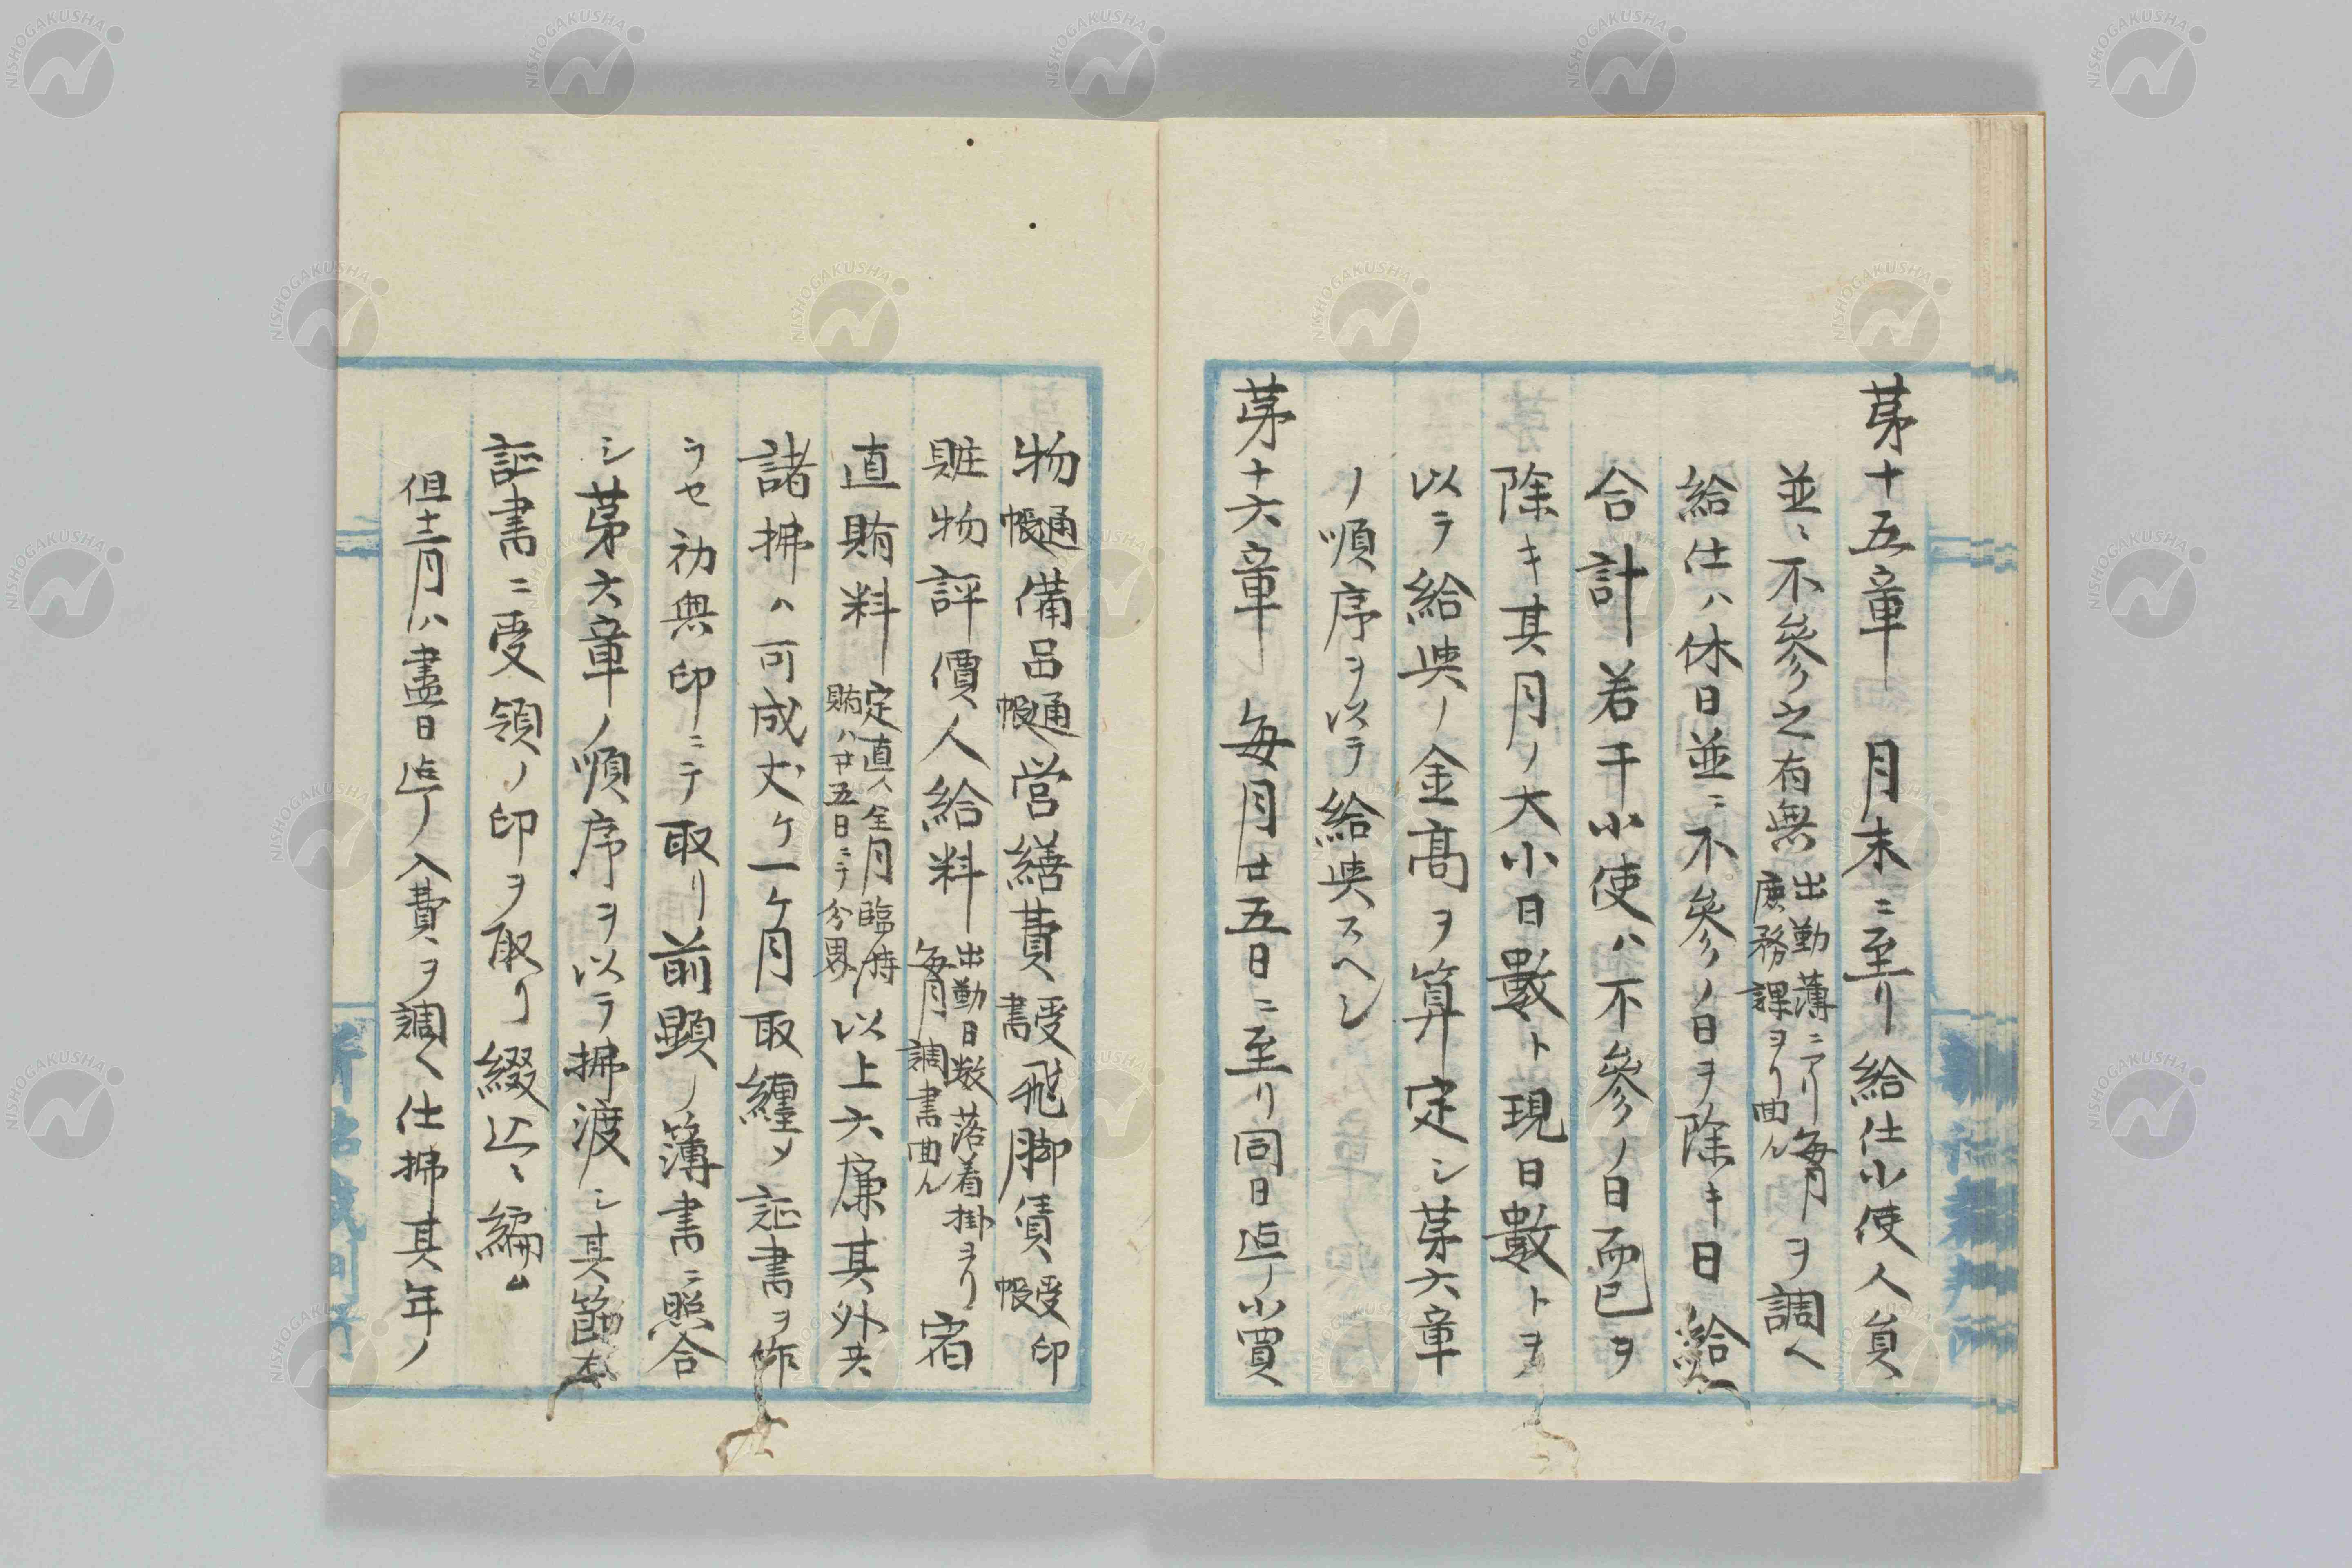 第十五章 月末ニ至リ給仕小使人員
並ニ不參之有無出勤薄ニアリ毎月庶務課ヨリ囬ルヲ調ヘ
給仕ハ休日並ニ不參ノ日ヲ除キ日給
合計若干小使ハ不參ノ日而已ヲ
除キ其月ノ大小日數ト現日數トヲ
以テ給與ノ金高ヲ算定シ第六章
ノ順序ヲ以テ給與スヘシ
第十六章 毎月廿五日ニ至リ同日迄ノ小買
物通帳備品通帳営繕費受書飛脚賃受印帳
賍物評價人給料出勤日数落着掛ヨリ毎月調書囬ル宿
直賄料定直人全月臨時賄ハ廿五日ニテ分界以上六廉其外共
諸拂ハ可成丈ケ一ケ月取纏メ証書ヲ作
ラセ初與印ニテ取リ前顕ノ簿書ニ照合
シ第六章ノ順序ヲ以テ拂渡シ其節本
証書ニ受領ノ印ヲ取リ綴込ミ編ム
但十二月ハ盡日迄ノ入費ヲ調ヘ仕拂其年ノ
NISHOGAKUSHA